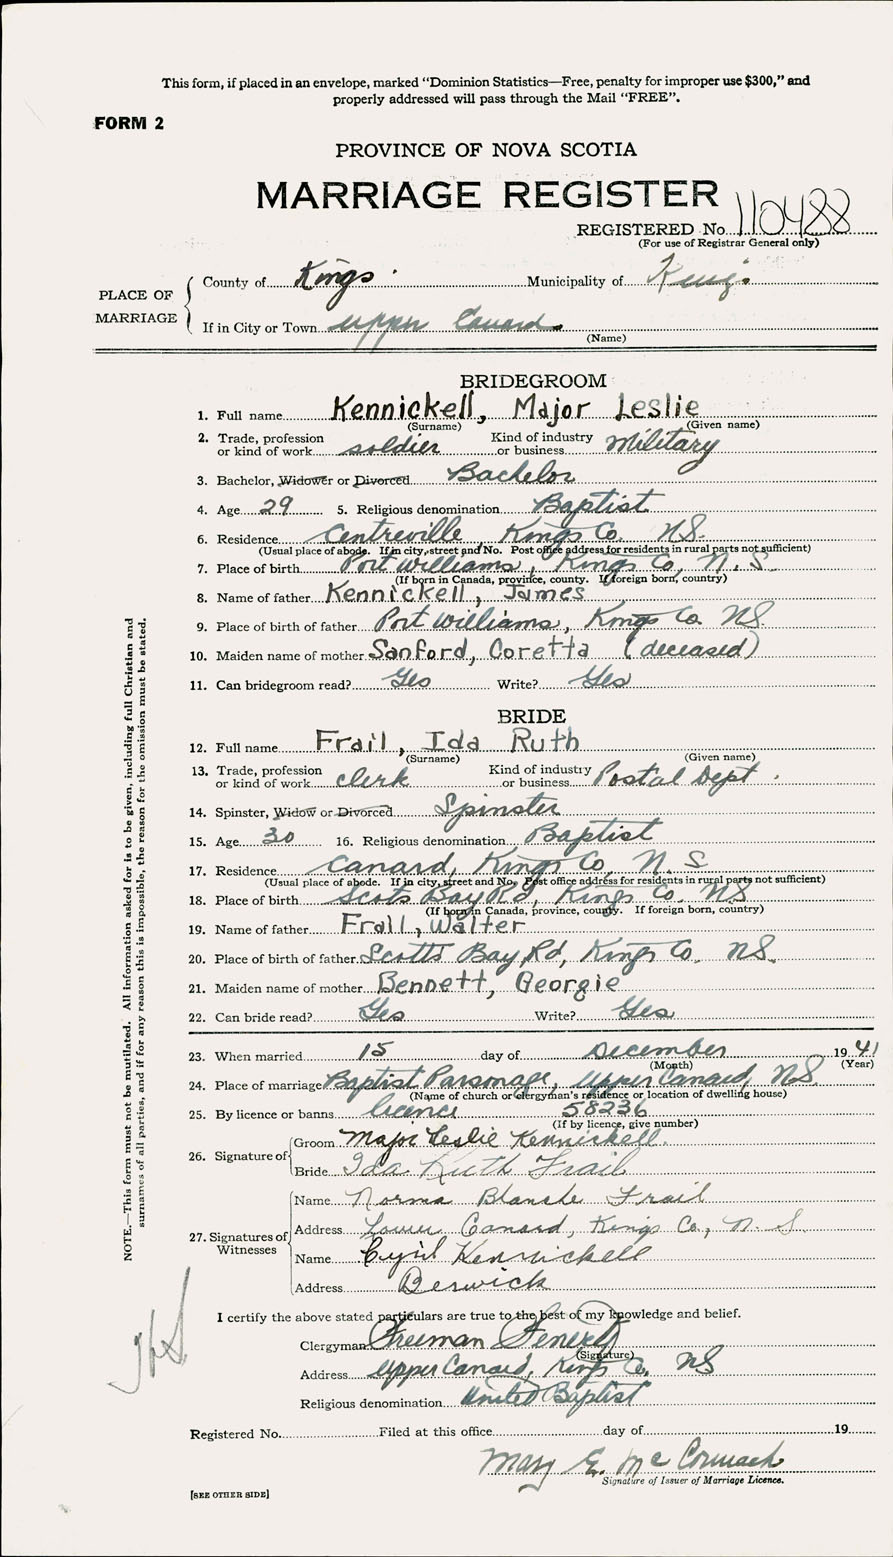 This form, if placed in an envelope, marked "Dominion Statistics—Free, penalty for improper use $300," and
properly addressed will pass through the Mail "FREE".
FORM 2
PROVINCE OF NOVA SCOTIA
MARRIAGE REGISTER
REGISTERED No. 110488
(For use of Registrar General only)
PLACE OF MARRIAGE
County of Kings. Municipality of Kings
If in City or Town Upper Canard
(Name)
BRIDEGROOM
1. Full name Kennickell, Major Leslie
(Surname) (Given name)
2. Trade, profession or kind of work soldier Kind of industry or business Military
3. Bachelor, Widower or Divorced Bachelor
4. Age 29 5. Religious denomination Baptist
6. Residence Centreville, Kings Co. NS.
(Usual place of abode. If in city, street and No. Post office address for residents in rural parts not sufficient)
7. Place of birth Port Williams, Kings Co, N.S.
(If born in Canada, province, county. If foreign born, country)
8. Name of father Kennickell, James
9. Place of birth of father Port Williams, Kings Co. NS.
10. Maiden name of mother Sanford, Coretta (deceased)
11. Can bridegroom read? Yes Write? Yes
BRIDE
12. Full name Frail, Ida Ruth
(Surname) (Given name)
13. Trade, profession or kind of work clerk Kind of industry or business Postal Dept.
14. Spinster, Widow or Divorced Spinster
15. Age 30 16. Religious denomination Baptist
17. Residence Canard, Kings Co, N.S
(Usual place of abode. If in city, street and No. Post office address for residents in rural parts not sufficient)
18. Place of birth Scots Bay Rd, Kings Co. NS
(If born in Canada, province, county. If foreign born, country)
19. Name of father Frail, Walter
20. Place of birth of father Scotts Bay Rd, Kings Co. NS.
21. Maiden name of mother Bennett, Georgie
22. Can bride read? Yes Write? Yes
23. When married 15 day of December 1941
(Month) (Year)
24. Place of marriage Baptist Parsonage, Upper Canard, NS
(Name of church or clergyman's residence or location of dwelling house)
25. By licence or banns licence 58236
(If by licence, give number)
26. Signature of
Groom Major Leslie Kennickell.
Bride Ida Ruth Frail
27. Signatures of Witnesses
Name Norma Blanche Frail
Address Lower Canard, Kings Co, N.S.
Name Cyril Kennickell
Address Berwick
I certify the above stated particulars are true to the best of my knowledge and belief.
Clergyman Freeman Fenerty
(Signature)
Address Upper Canard, Kings Co. NS
Religious denomination United Baptist
Registered No. Filed at this office day of 19
Mary E. McCormack
Signature of Issuer of Marriage Licence.
[SEE OTHER SIDE]
NOTE.—This form must not be mutilated. All information asked for is to be given, including full Christian and
surnames of all parties, and if for any reason this is impossible, the reason for the omission must be stated.